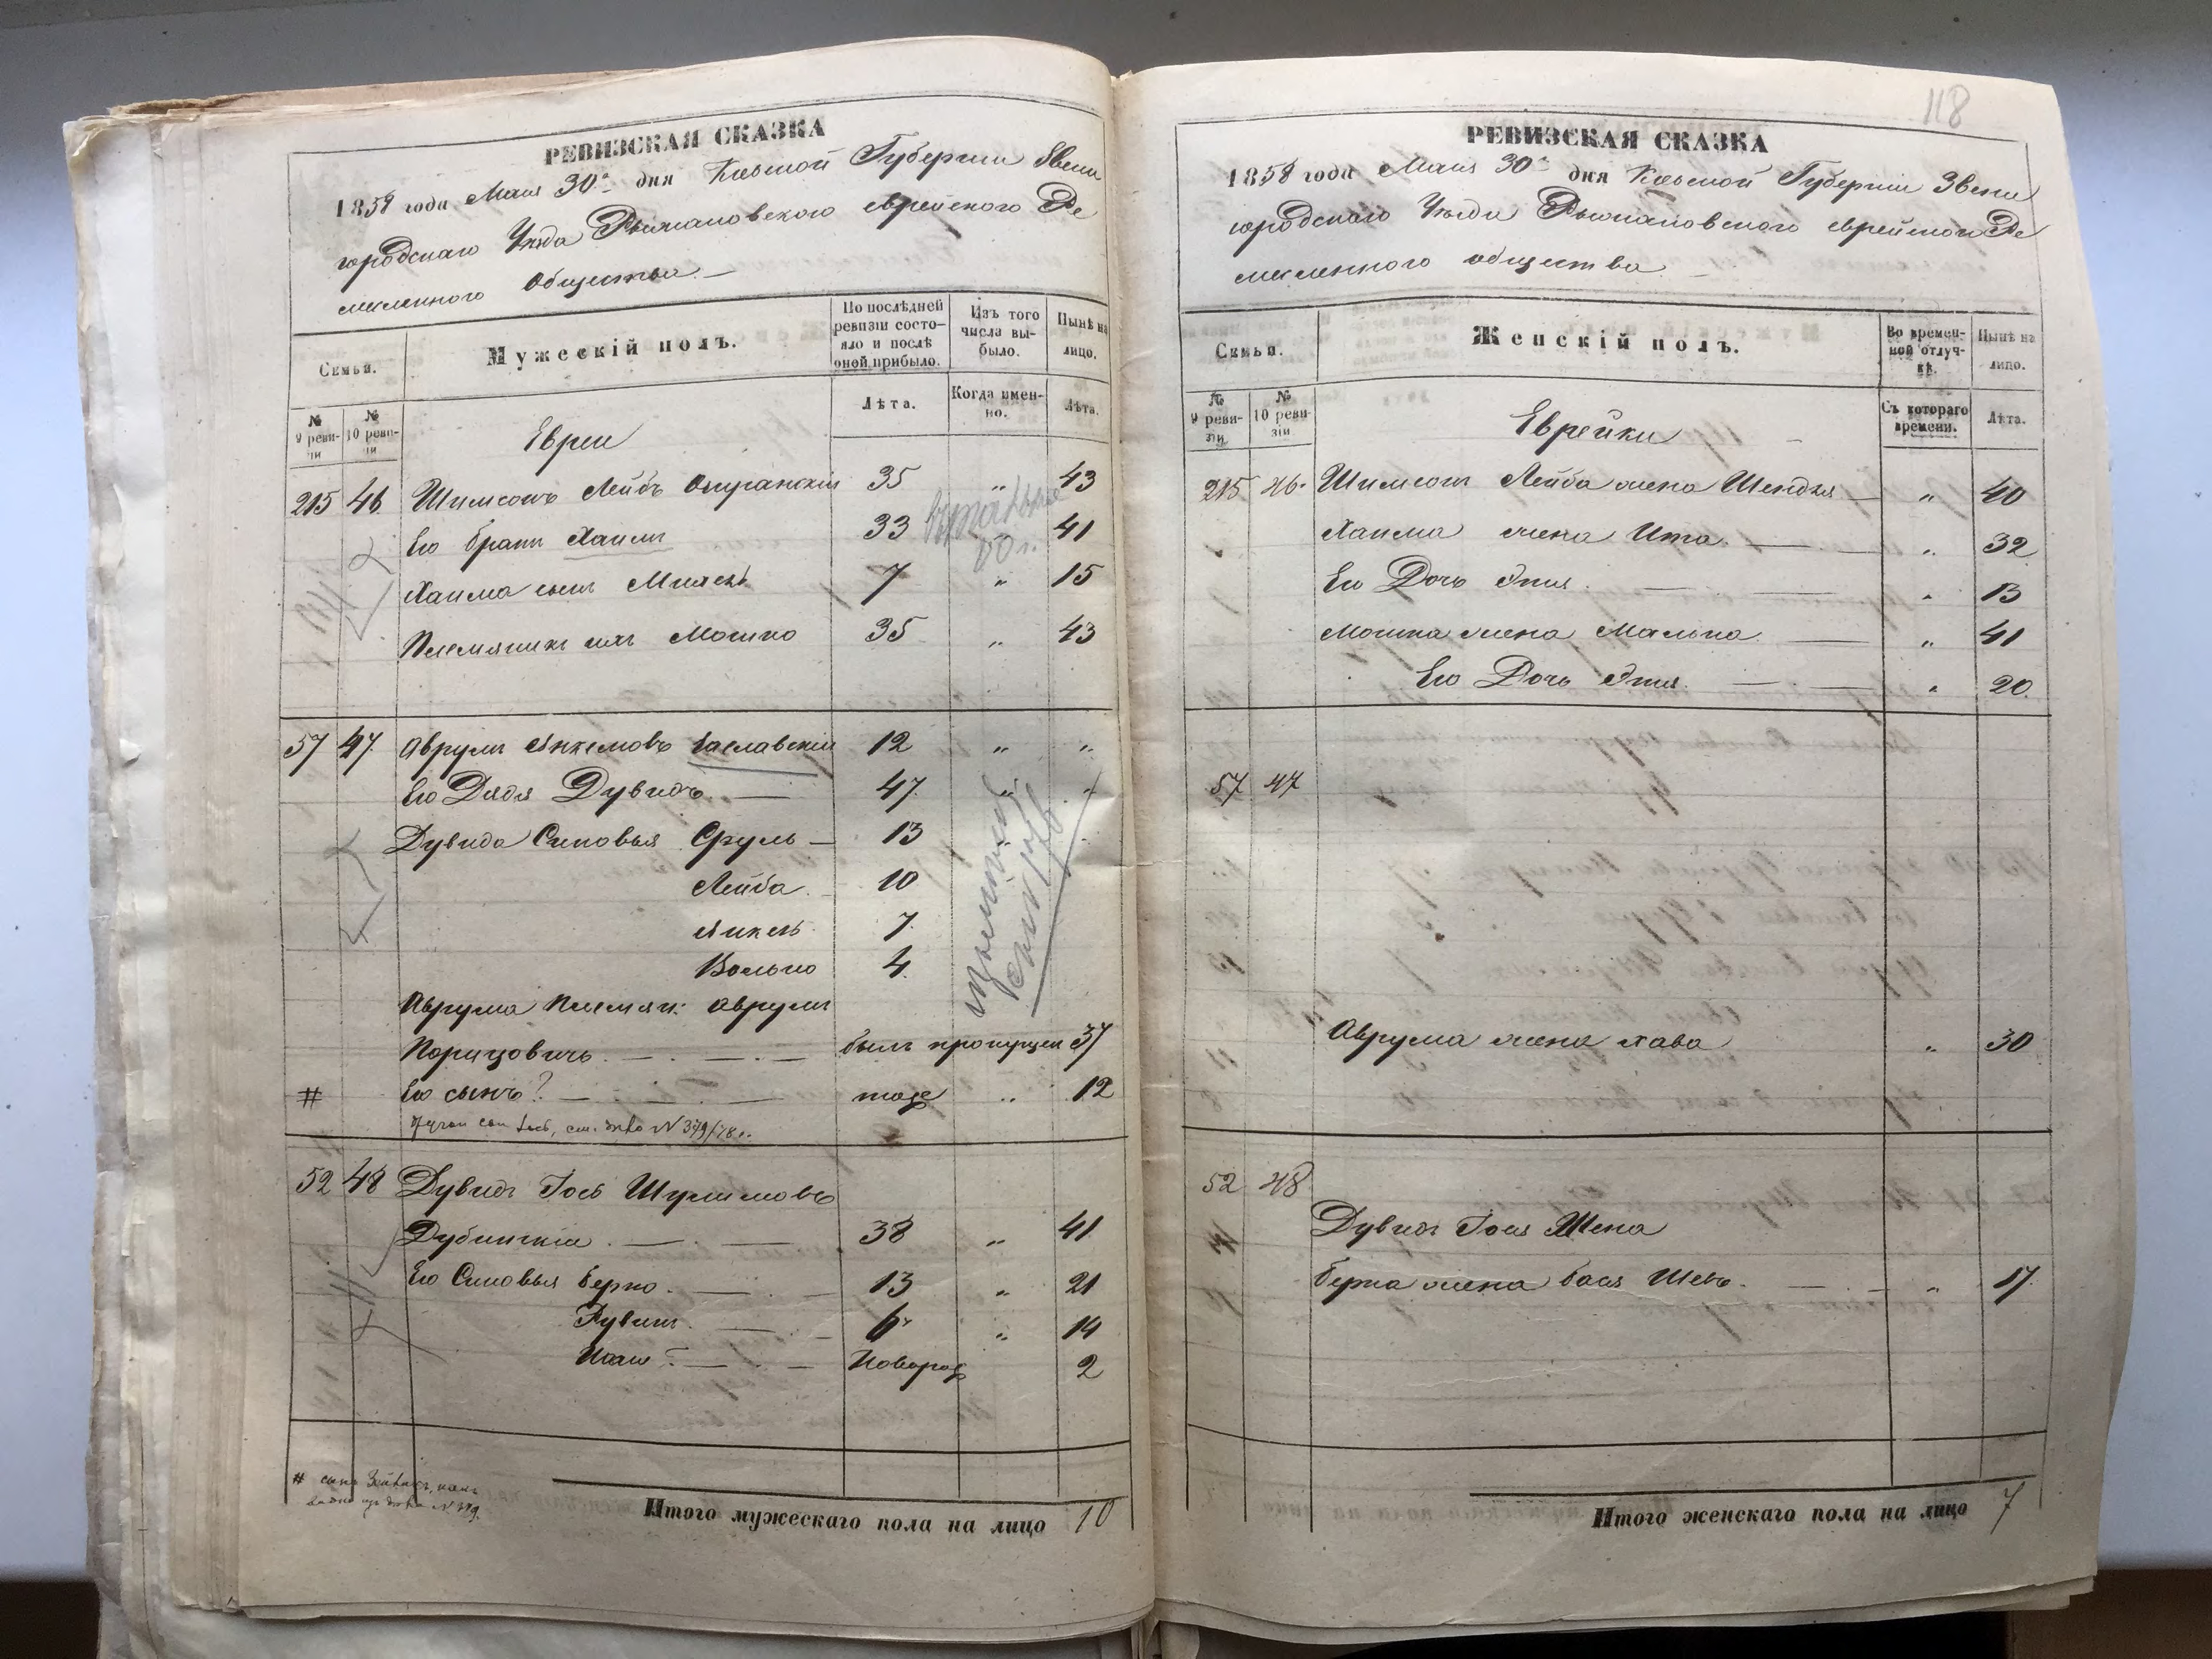 РЕВИЗСКАЯ СКАЗКА
1858 года Маия 30го дня Кіевской Губерніи Звени
городскаго Уезда Рыжановского еврейского Ре
месленного Общества. —
Семьи.
Мужескій полъ.
По послѣдней ревизіи состояло и послѣ оной прибыло.
Изъ того числа выбыло.
Нынѣ на лицо.
№ 9 ревизіи
№ 10 ревизіи
Лѣта.
Когда именно.
Лѣта.
Евреи
215 46 Шимсонъ Лейбъ 35 „ 43
Его братъ Хаимъ 33 41
Хаима сынъ 7 „ 15
Племяникъ ихъ Мошко 35 „ 43
57 47 Аврумъ Янкелювъ Заславскій 12 „ „
Его Дядя Дувидъ — 47 „ „
Дувида Синовья Сруль — 13
Лейба 10
Янкель 7
Волько 4
Аврума Племян: Аврумъ
Порицовичъ — былъ пропущен 37
# Его сынъ? — тоже „ 12
52 48 Дувидъ Іось Шулимовъ
Дубинскій — 38 „ 41
Его Синовья Берко — 13 „ 21
Рувинъ — 6 „ 14
— Новорож 2
# сынъ
№ 379.
Итого мужескаго пола на лицо 10
118
РЕВИЗСКАЯ СКАЗКА
1858 года Маия 30го дня Кіевской Губерніи Звени
городскаго Уезда Рыжановского еврейского Ре
месленного общества
Семьи.
Женскій полъ.
Во временной отлучкѣ.
Нынѣ на лицо.
№ 9 ревизіи
№ 10 ревизіи
Съ котораго времени.
Лѣта.
Еврейки
215 46 Шимсон Лейба жена Шендля — „ 40
Хаима жена Ита — „ 32
Его Дочь Этя — „ 13
Мошка жена Малька — „ 41
Его Дочь Этя — „ 20
57 47
Аврума жена Хава „ 30
52 48
Дувидъ Іося Жена
Берка жена Бася Шева — „ 17
Итого женскаго пола на лицо 7